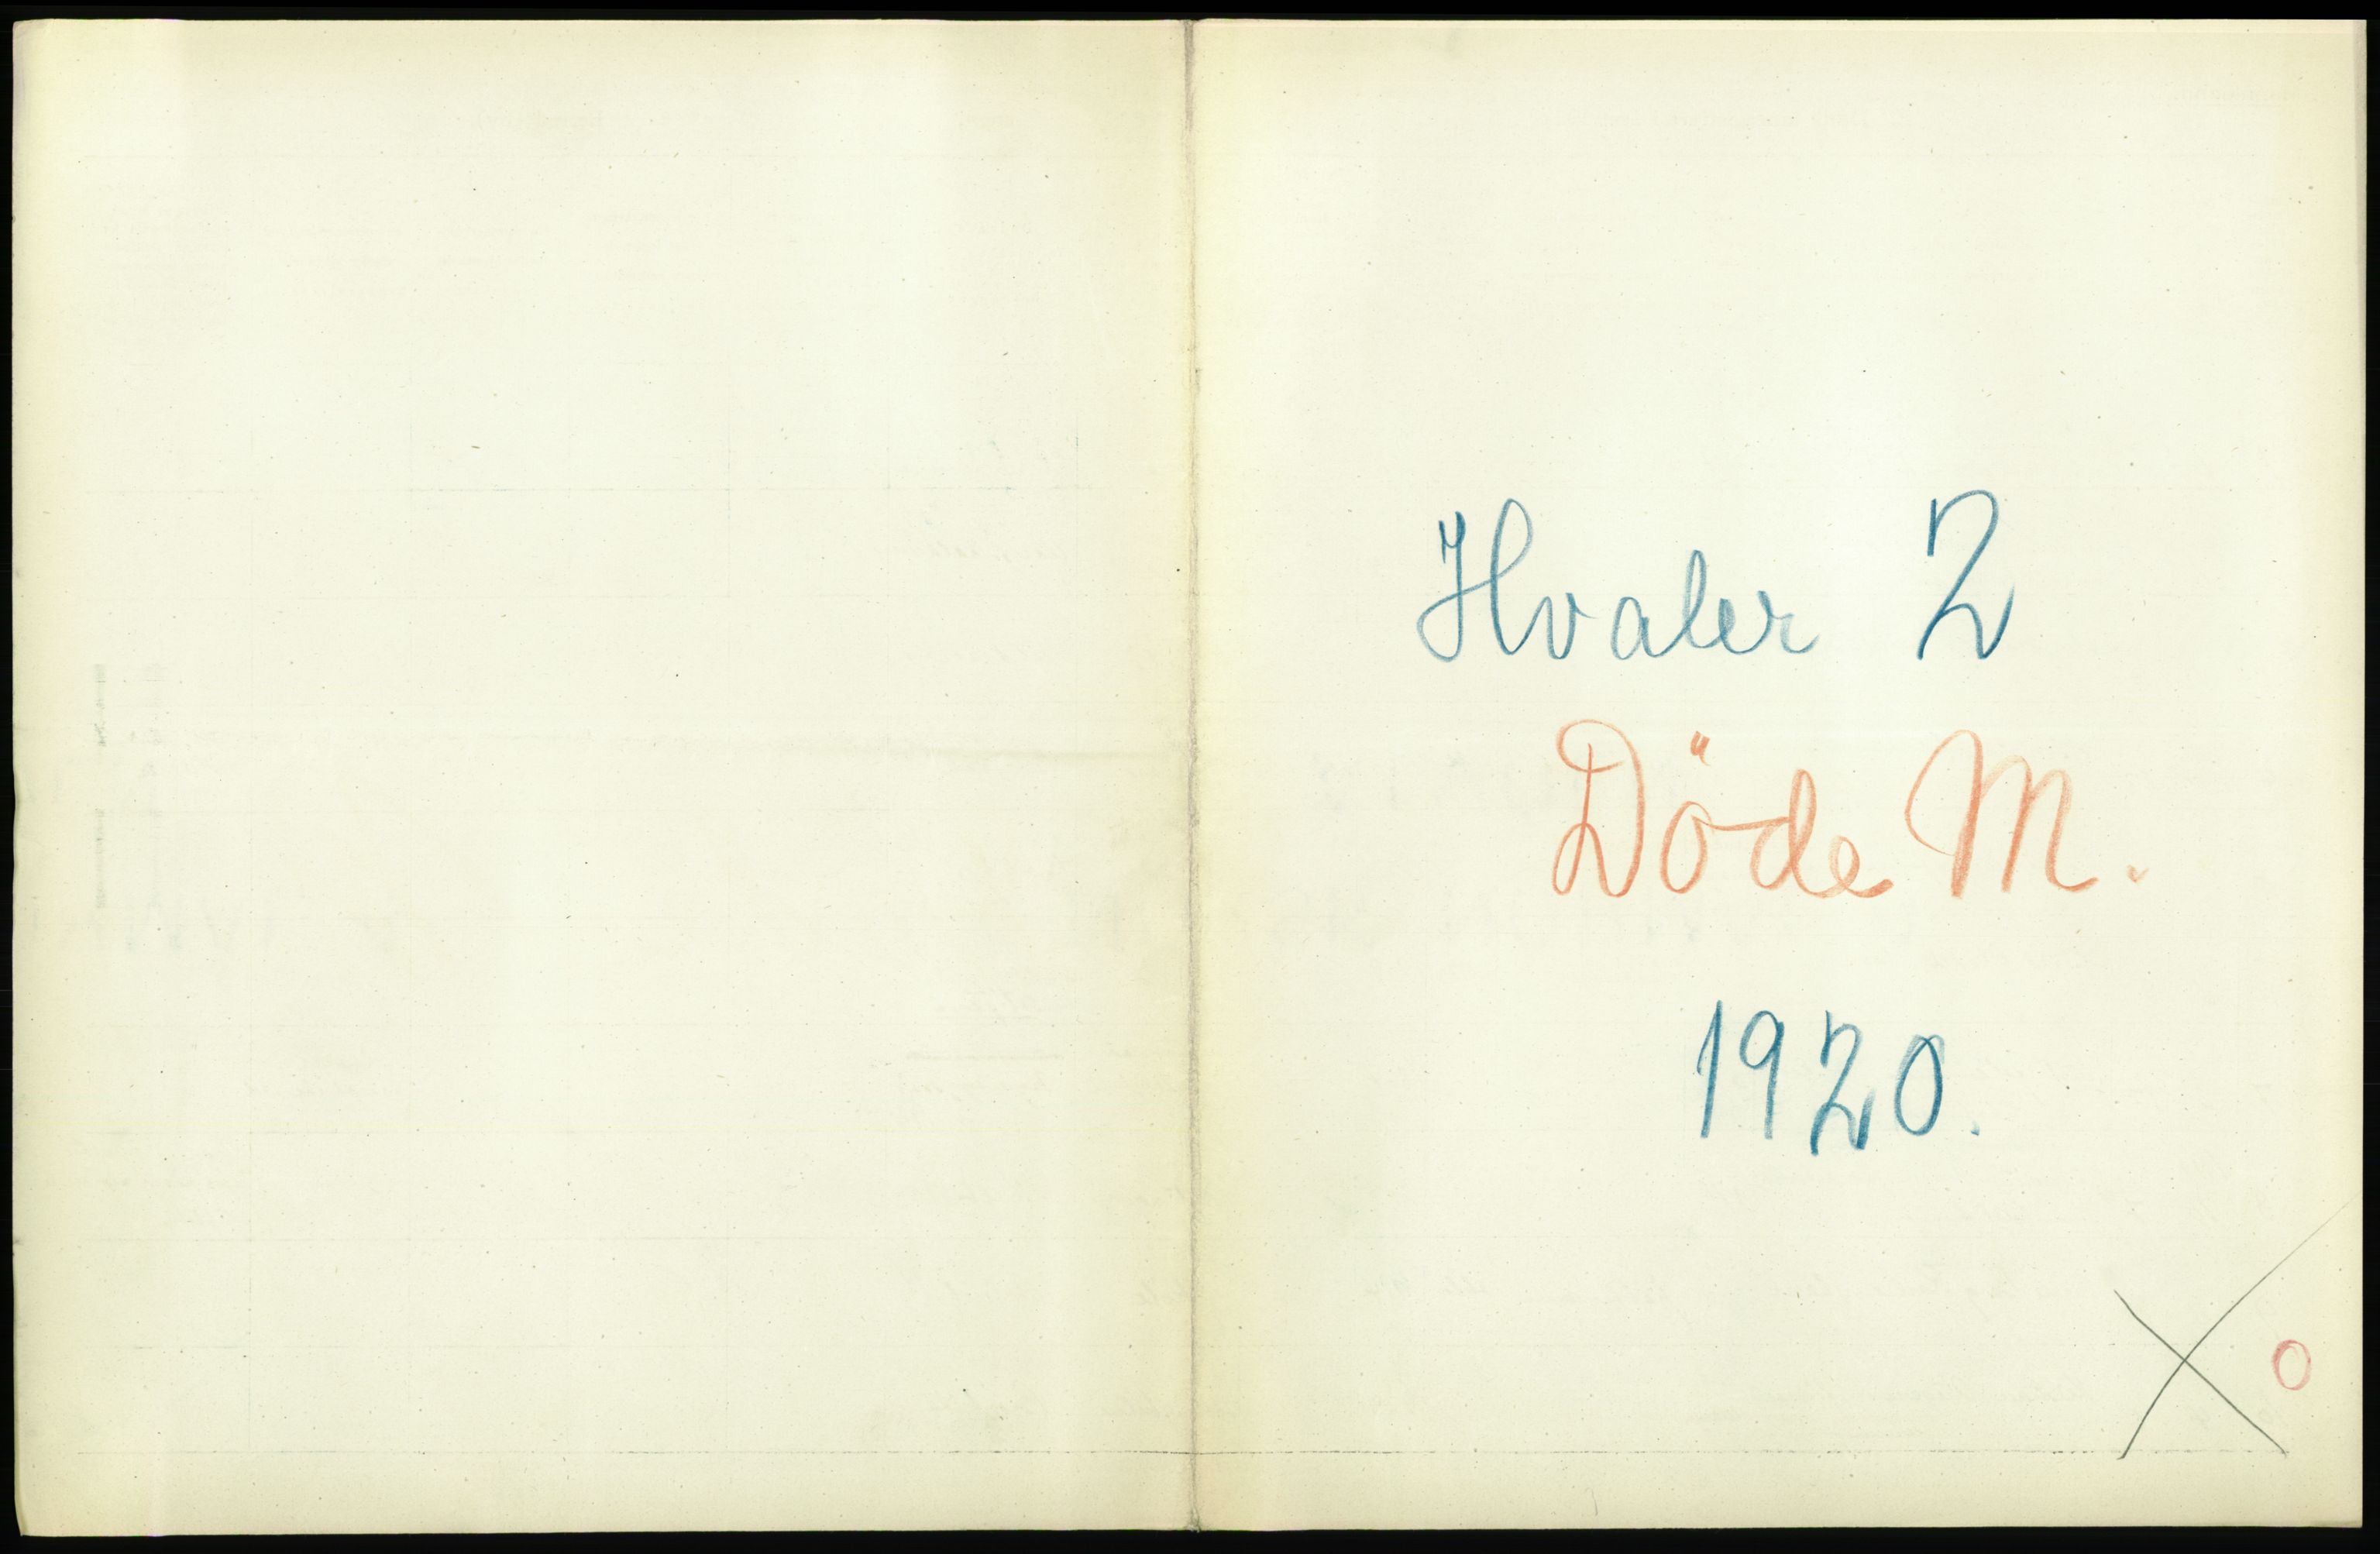 Hvaler 2
Döde M.
1920.
X 0